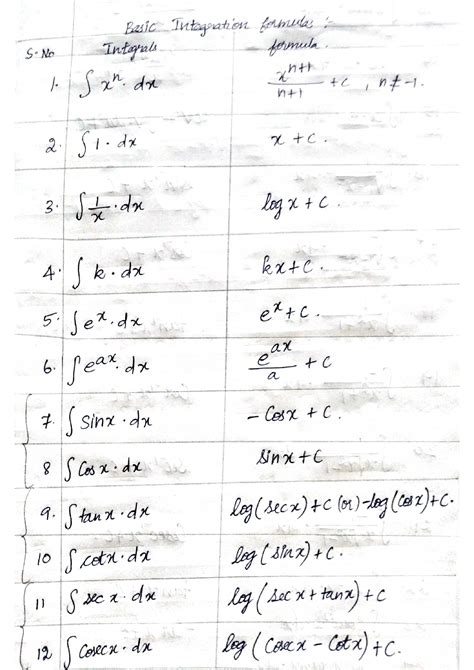 Basic Integration formulas :
S. No Integrals formula.
1. ∫ xⁿ · dx xⁿ⁺¹/n+1 + c , n ≠ -1.
2. ∫ 1 · dx x + c .
3. ∫ 1/x · dx log x + c .
4. ∫ k · dx kx + c .
5. ∫ eˣ · dx eˣ + c .
6. ∫ eᵃˣ · dx eᵃˣ/a + c
7. ∫ sinx · dx - Cosx + c .
8 ∫ Cos x · dx sinx + c
9. ∫ tanx · dx log (secx) + c (or) -log (Cosx) + c.
10 ∫ cotx · dx log (sinx) + c .
11 ∫ sec x · dx log (sec x + tanx) + c
12 ∫ Cosecx · dx log (Cosecx - Cotx) + c.